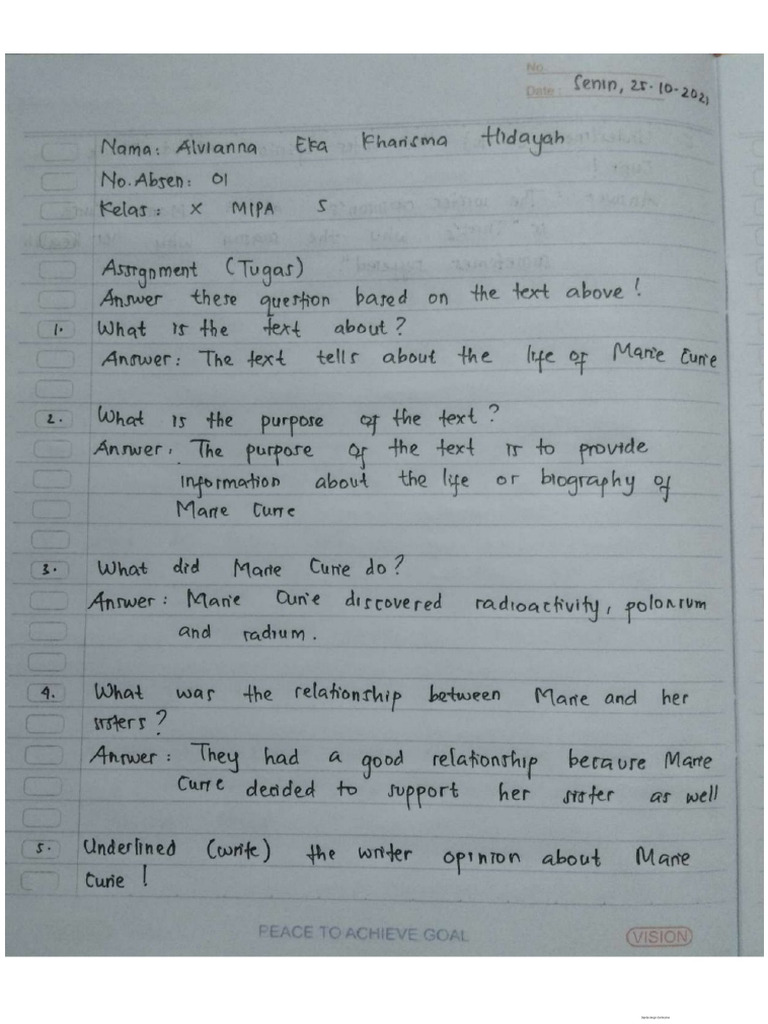 No.
Date: Senin, 25-10-2021
Nama: Alvianna Eka Kharisma Hidayah
No. Absen: 01
Kelas: X MIPA 5
Assignment (Tugas)
Answer these question based on the text above!
1. What is the text about?
Answer: The text tells about the life of Marie Curie
2. What is the purpose of the text?
Answer: The purpose of the text is to provide
information about the life or biography of
Marie Curie
3. What did Marie Curie do?
Answer: Marie Curie discovered radioactivity, polonium
and radium.
4. What was the relationship between Marie and her
sisters?
Answer: They had a good relationship because Marie
Curie decided to support her sister as well
5. Underlined (write) the writer opinion about Marie
Curie!
PEACE TO ACHIEVE GOAL
VISION